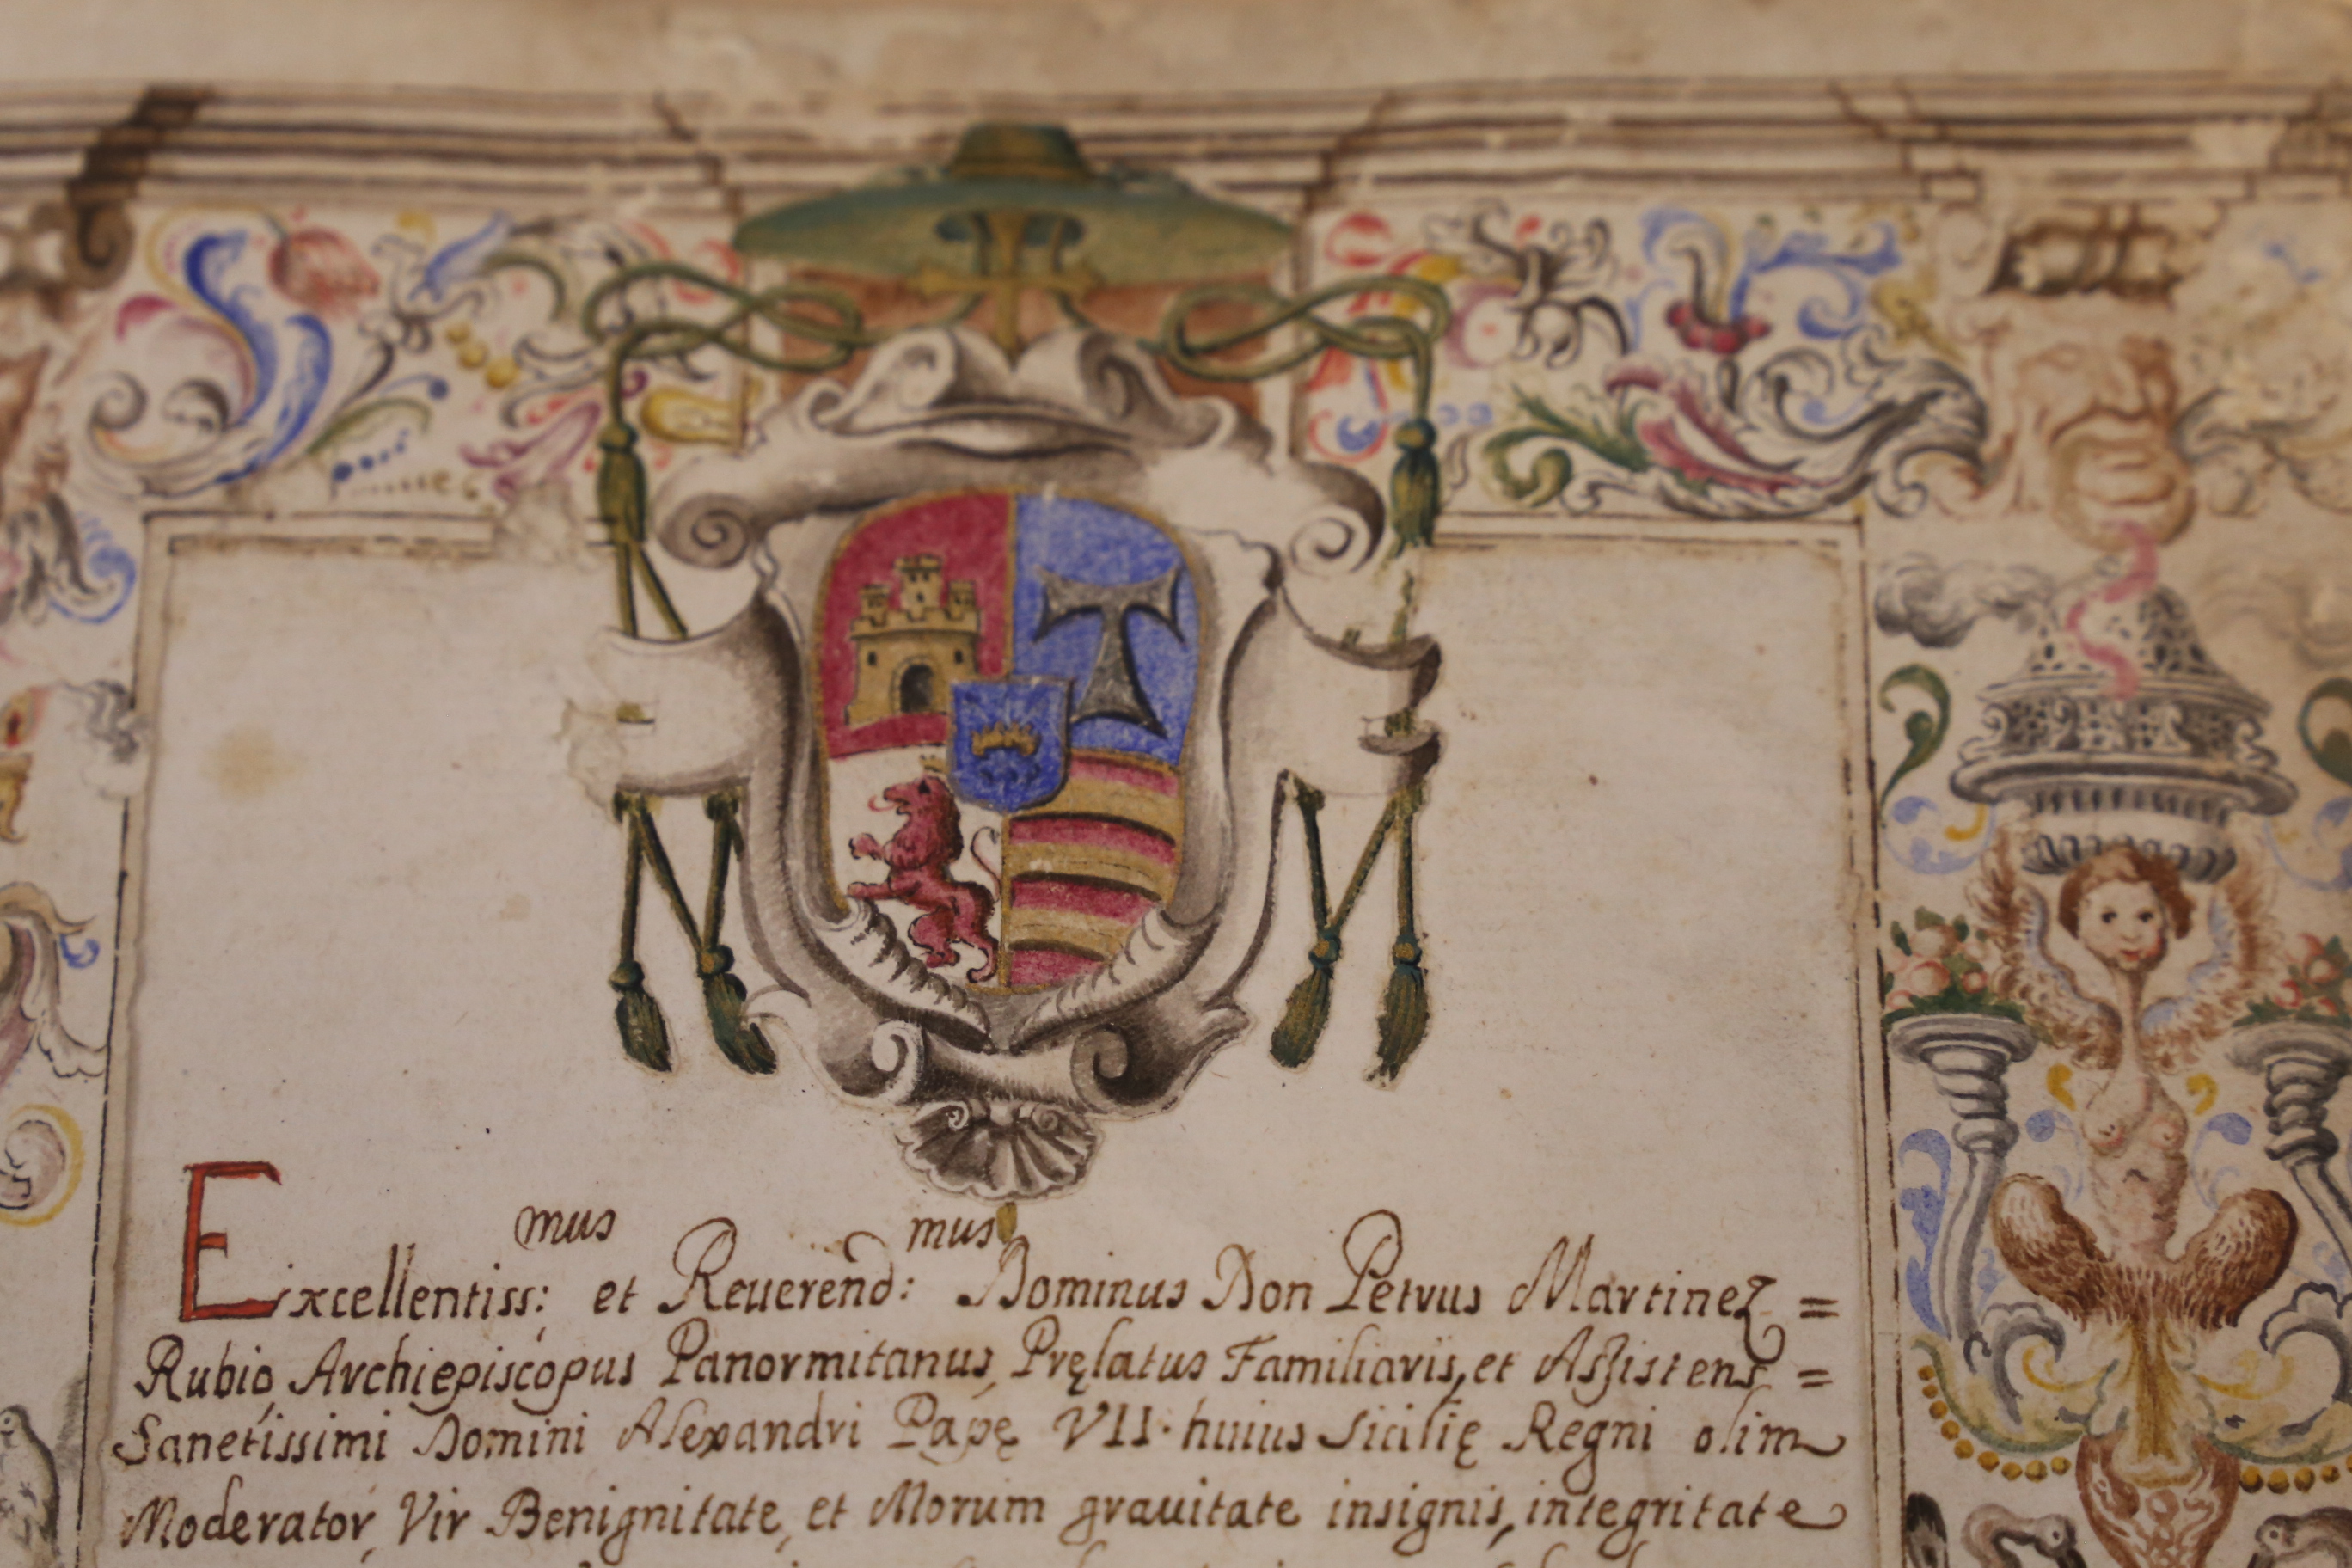 mus mus
Excellentiss: et Reuerend: Dominus Don Petrus Martinez =
Rubio, Archiepiscopus Panormitanus, Pręlatus Familiaris, et Assistens =
Sanctissimi Domini Alexandri Papę VII. huius Sicilię Regni olim
Moderator, Vir Benignitate, et Morum grauitate insignis, integritate